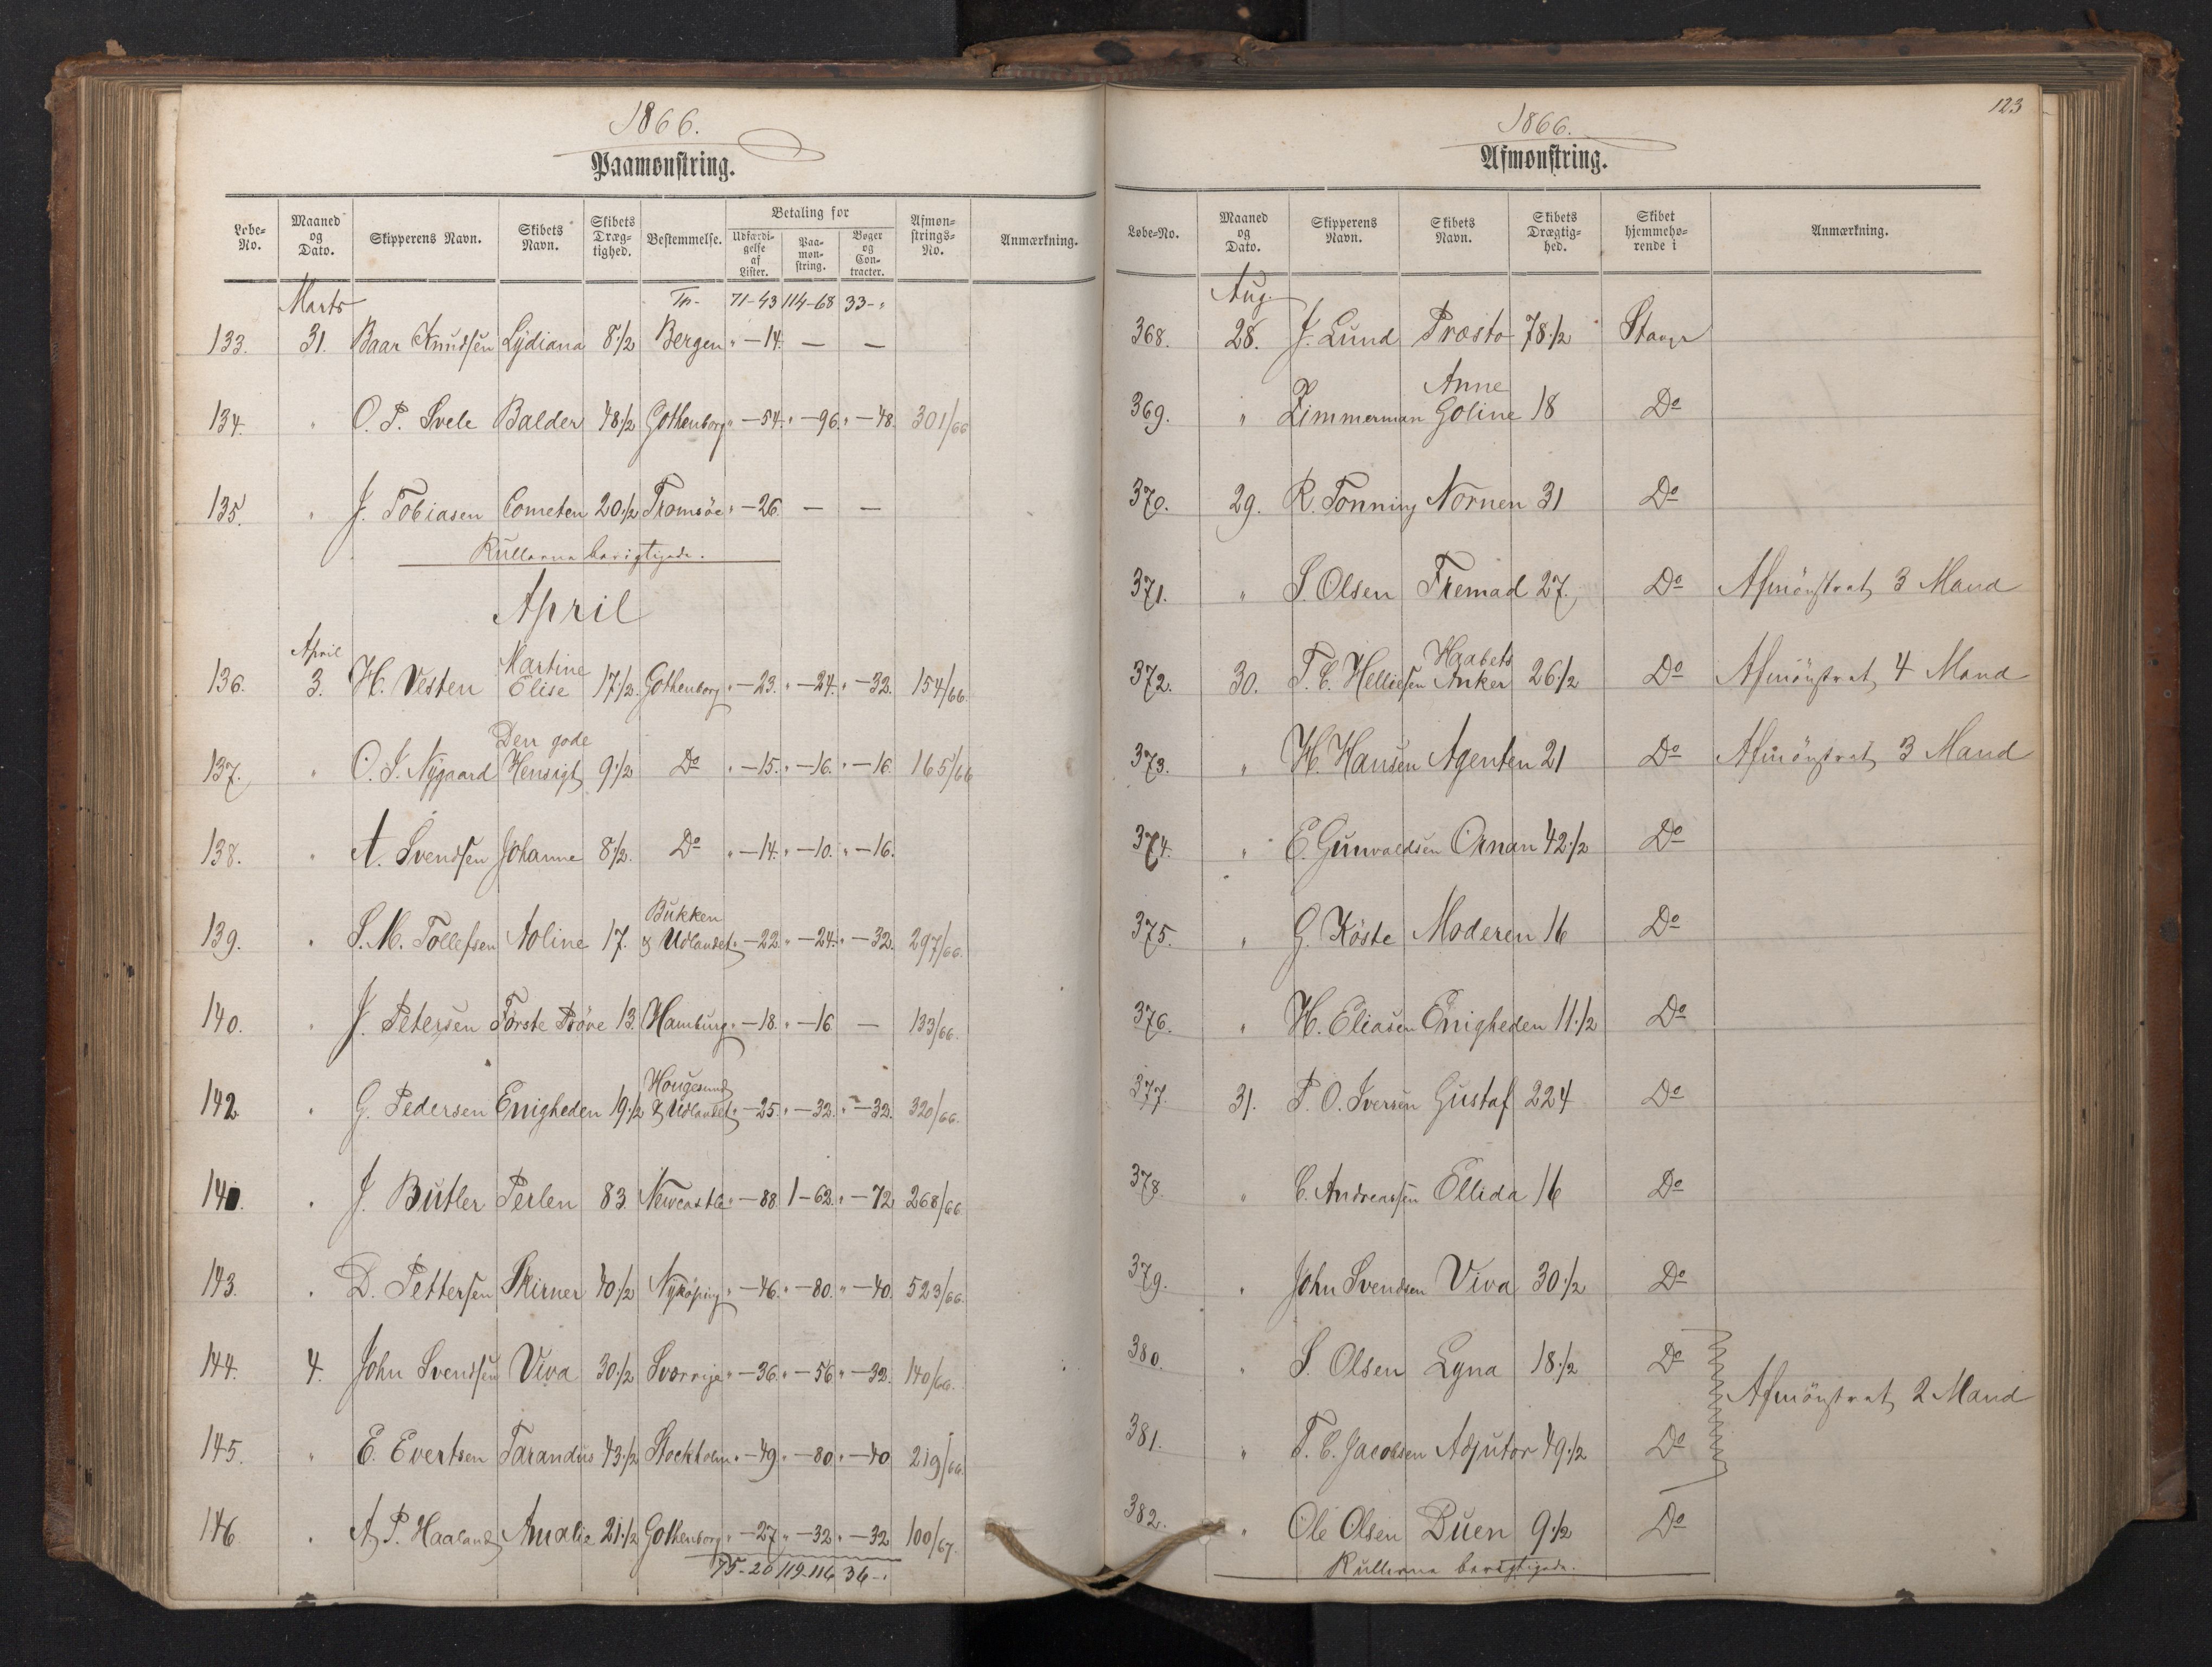 1866.
Paamønstring.
Løbe-No. Maaned og Dato. Skipperens Navn. Skibets Navn. Skibets Dræg-tighed. Bestemmelse. Betaling for Udfærdi-gelse af Lister. Paa-møn-string. Bøger og Con-tracter. Afmøn-strings-No. Anmærkning.
Marts Tr. 71-43 114-68 33-"
133. 31. Baar Knudsen Lydiana 8 1/2 Bergen "-14. — —
134. " O. P. Svele Balder 48 1/2 Gothenborg "-54. "-96. "-48. 301/66
135. " J. Tobiasen Cometen 20 1/2 Tromsöe "-26 — —
Rullerne berigtigede.
April
April Martine
136. 3. H. Vesten Elise 17 1/2 Gothenborg "-23. "-24. "-32. 154/66.
Den gode
137. " O. J. Nygaard Hensigt 9 1/2 Do "-15. "-16. "-16. 165/66
138. " A. Svendsen Johanne 8 1/2. Do "-14. "-10. "-16.
Bukken
139. " S. M. Tollefsen Aoline 17. & Udlandet "-22. "-24. "-32. 297/66.
140. " J. Petersen Første Prøve 13. Hamburg "-18. "-16 — 133/66.
Hougesund
142. " G. Pedersen Enigheden 19 1/2 & Udlandet "-25. "-32. "-32. 320/66.
14. " J. Butler Perlen 83. Newcastle "-88. 1-62. "-72 268/66
143. " D. Pettersen Skirner 40 1/2 Nykøping "-46. "-80. "-40. 523/66.
144. 4. John Svendsen Viva 30 1/2 Sverrige "-36. "-56 "-32. 140/66.
145. " E. Evertsen Tarandus 43 1/2 Stockholm "-49. "-80. "-40 219/66.
146 " A. P. Haaland Amalie 21 1/2 Gothenborg "-27. "-32. "-32 100/67.
75-20 119-116 36-"
123
1866.
Afmønstring.
Løbe-No. Maaned og Dato. Skipperens Navn. Skibets Navn. Skibets Drægtig-hed. Skibet hjemmehø-rende i Anmærkning.
Aug.
368. 28. J. Lund Præsto 78 1/2 Stavgr
Anne
369. " Zimmerman Goline 18 Do
370. 29. R. Tonning Nornen 31 Do
371. " S. Olsen Fremad 27. Do Afmönstret 3 Mand
Haabets
372. 30. T. C. Helliesen Anker 26 1/2 Do Afmönstret 4 Mand
373. " H. Hansen Agenten 21 Do Afmönstret 3 Mand
374. " E. Gunvaldsen Ornan 42 1/2 Do
375. " G. Köste Moderen 16 Do
376. " H. Eliasen Enigheden 11 1/2 Do
377. 31. P. O. Iversen Gustaf 224 Do
378. " C. Andreassen Ellida 16 Do
379. " John Svendsen Viva 30 1/2 Do
380. " S. Olsen Lyna 18 1/2 Do
Afmönstret 2 Mand
381. " T. C. Jacobsen Adjutor 49 1/2 Do
382. " Ole Olsen Duen 9 1/2 Do
Rullerne berigtigede.